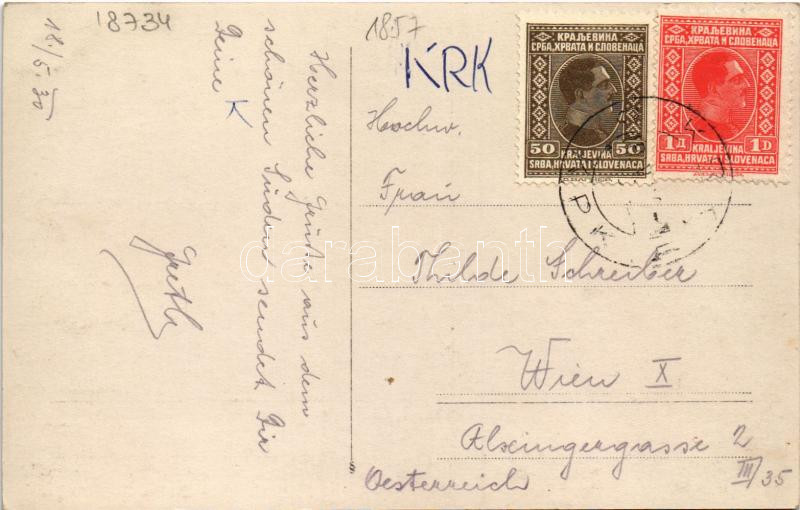 18734
18./5.30
Herzliche Grüße aus dem
schönen Süden sendet Dir
Deine K
1857
KRK
КРАЉЕВИНА
СРБА, ХРВАТА И СЛОВЕНАЦА
50 50
KRALJEVINA
SRBA, HRVATA I SLOVENACA
КРАЉЕВИНА
СРБА, ХРВАТА И СЛОВЕНАЦА
1Д 1D
KRALJEVINA
SRBA, HRVATA I SLOVENACA
Hochw.
Frau
Thilde Schreiber
Wien X
Alxingergasse 2
III/35
Oesterreich
darabanth